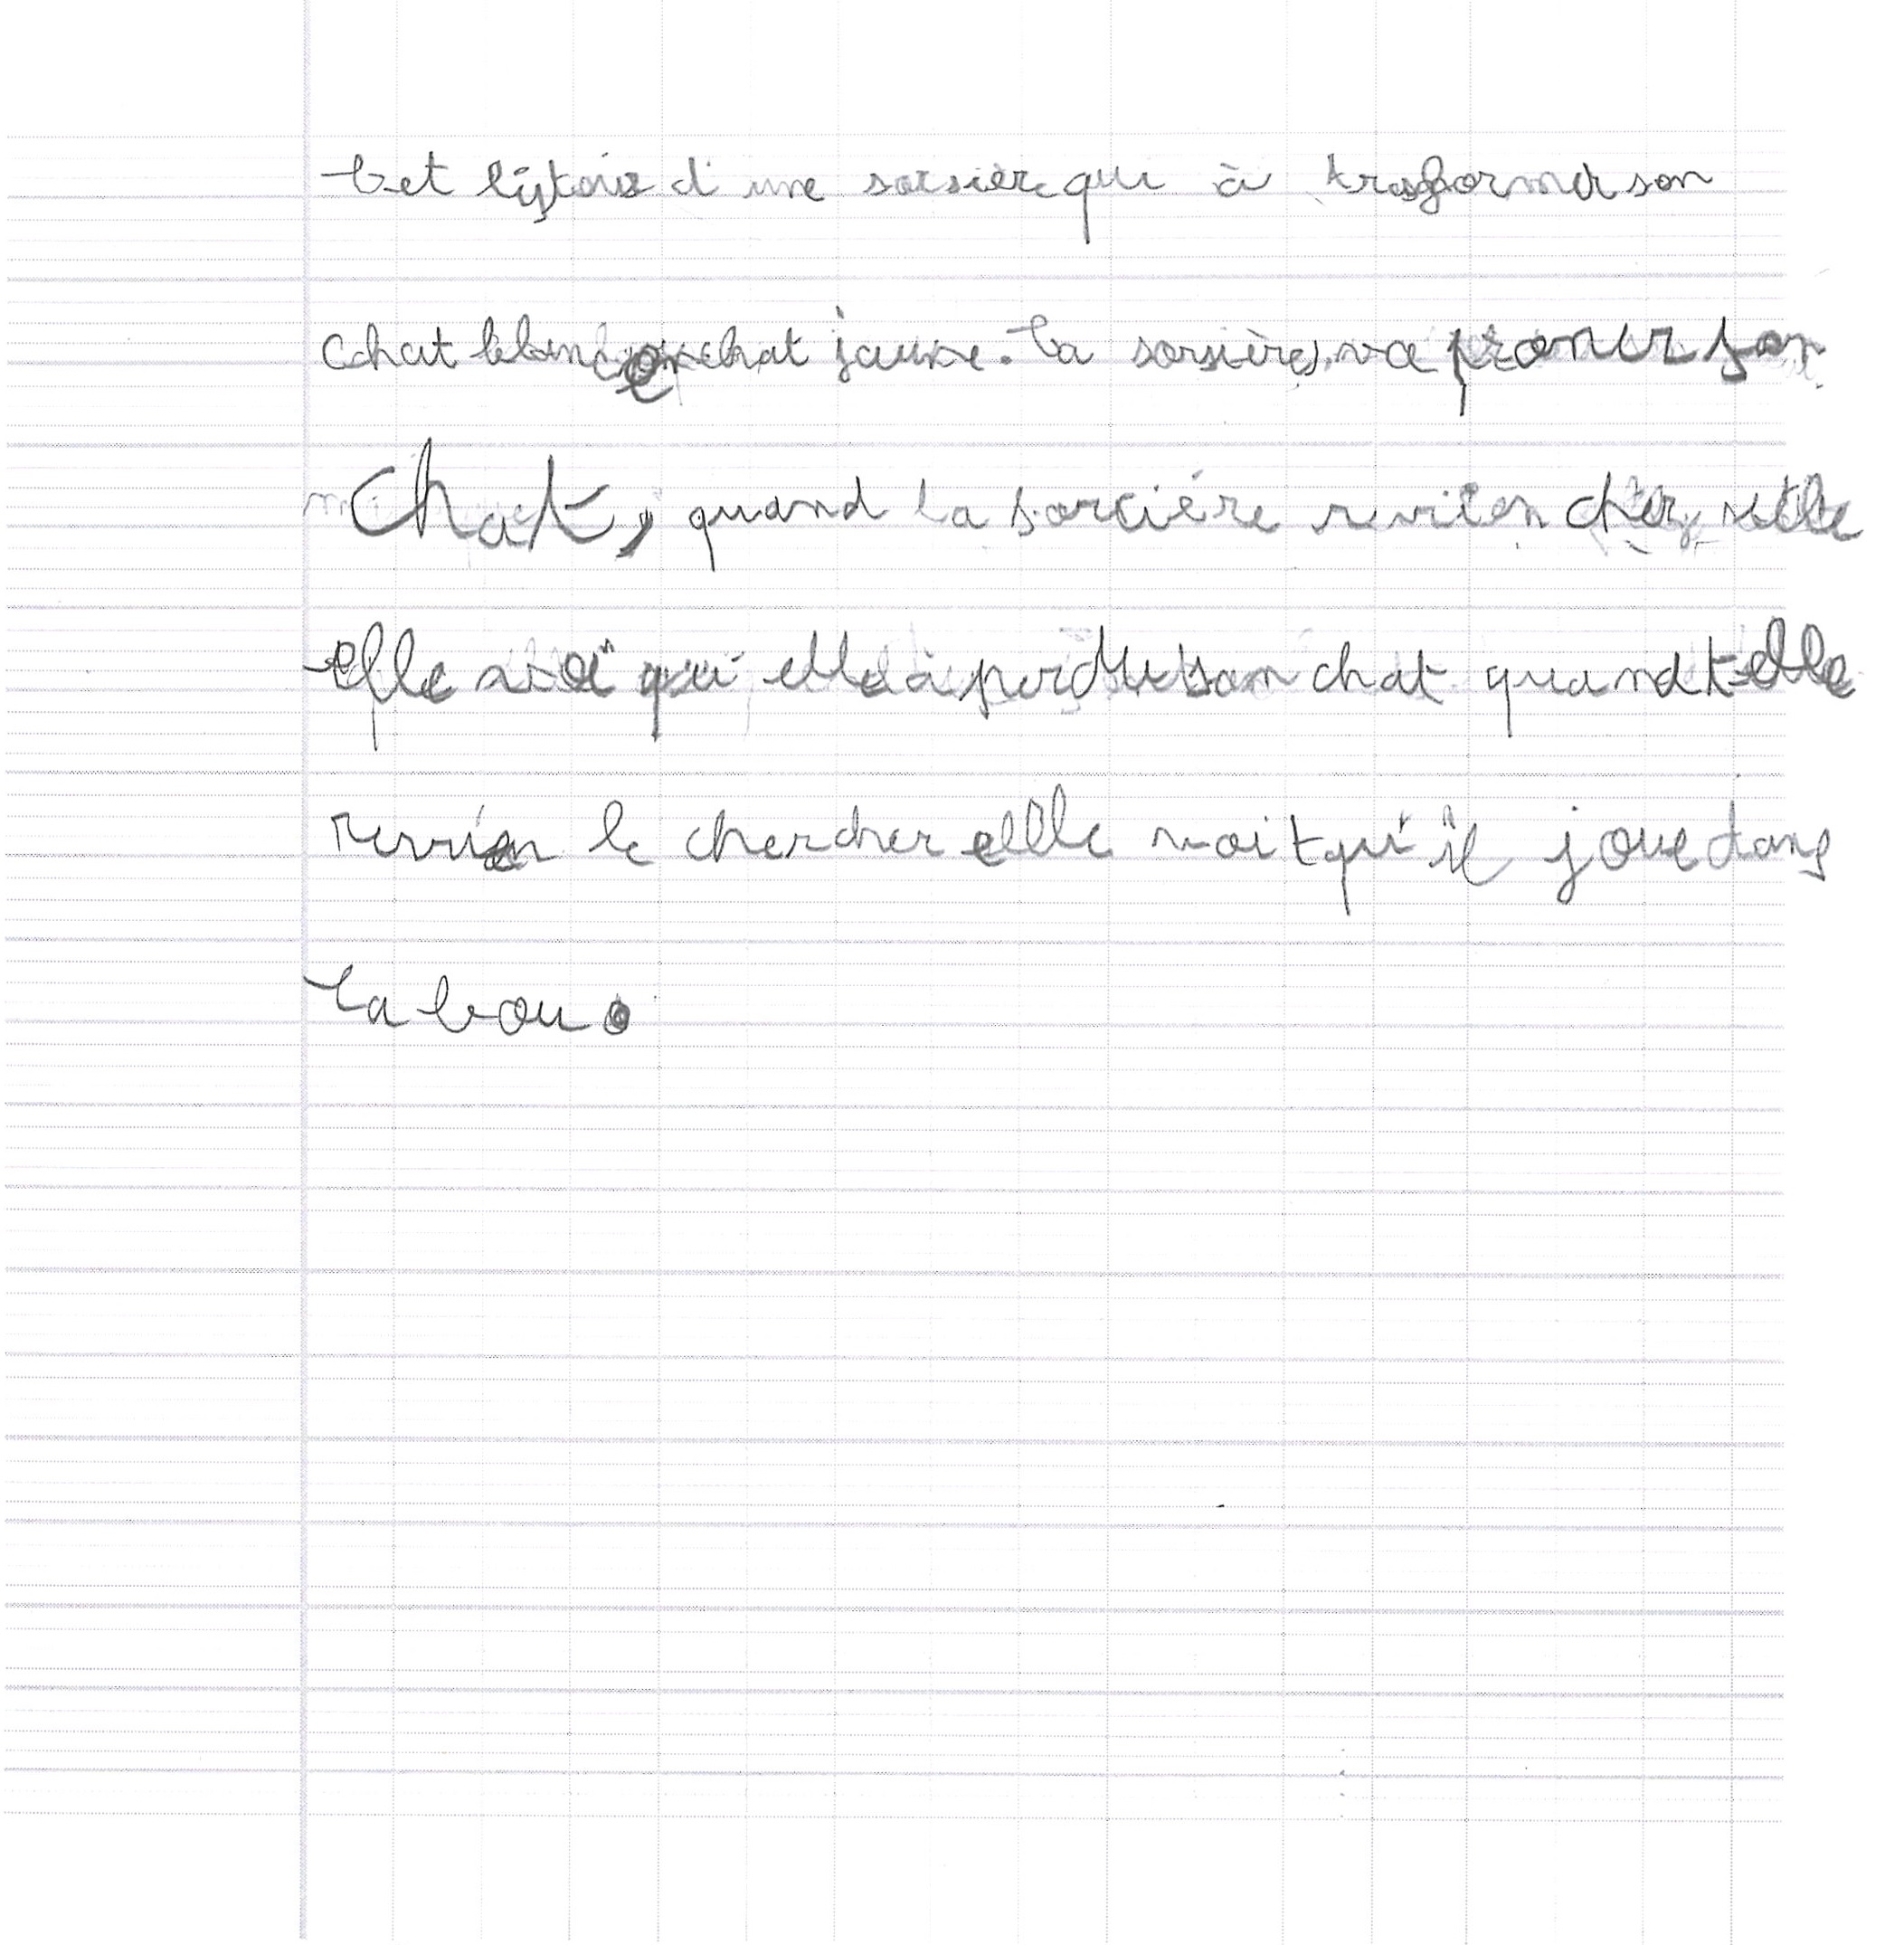 Cet l'istoire d'une sorsière qui à trasformer son
chat blanc en chat jaune. La sorsière va proner son
chat, quand la sorcière revien cher elle
elle voi qu'elle à perdu son chat quand t-elle
revien le chercher elle voit qu'il joue dans
la bou.